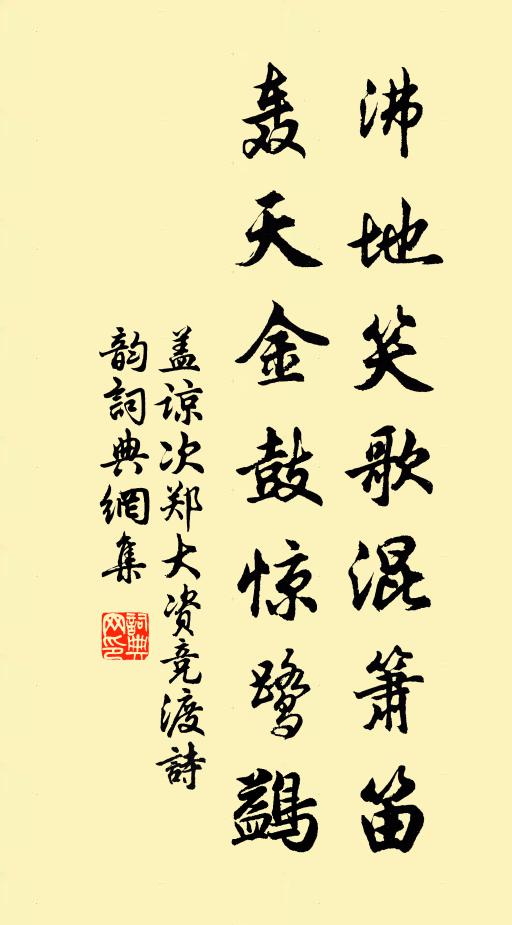 沸地笑歌混箫笛
轰天金鼓惊鹭鷁
盖谅次郑大资竞渡詩
韵詞典網集
詞典網印